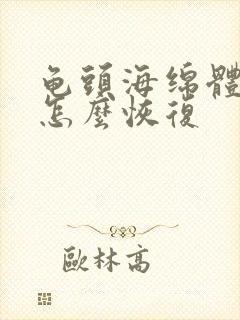 龟頭海绵體
怎麼恢復
歐林高